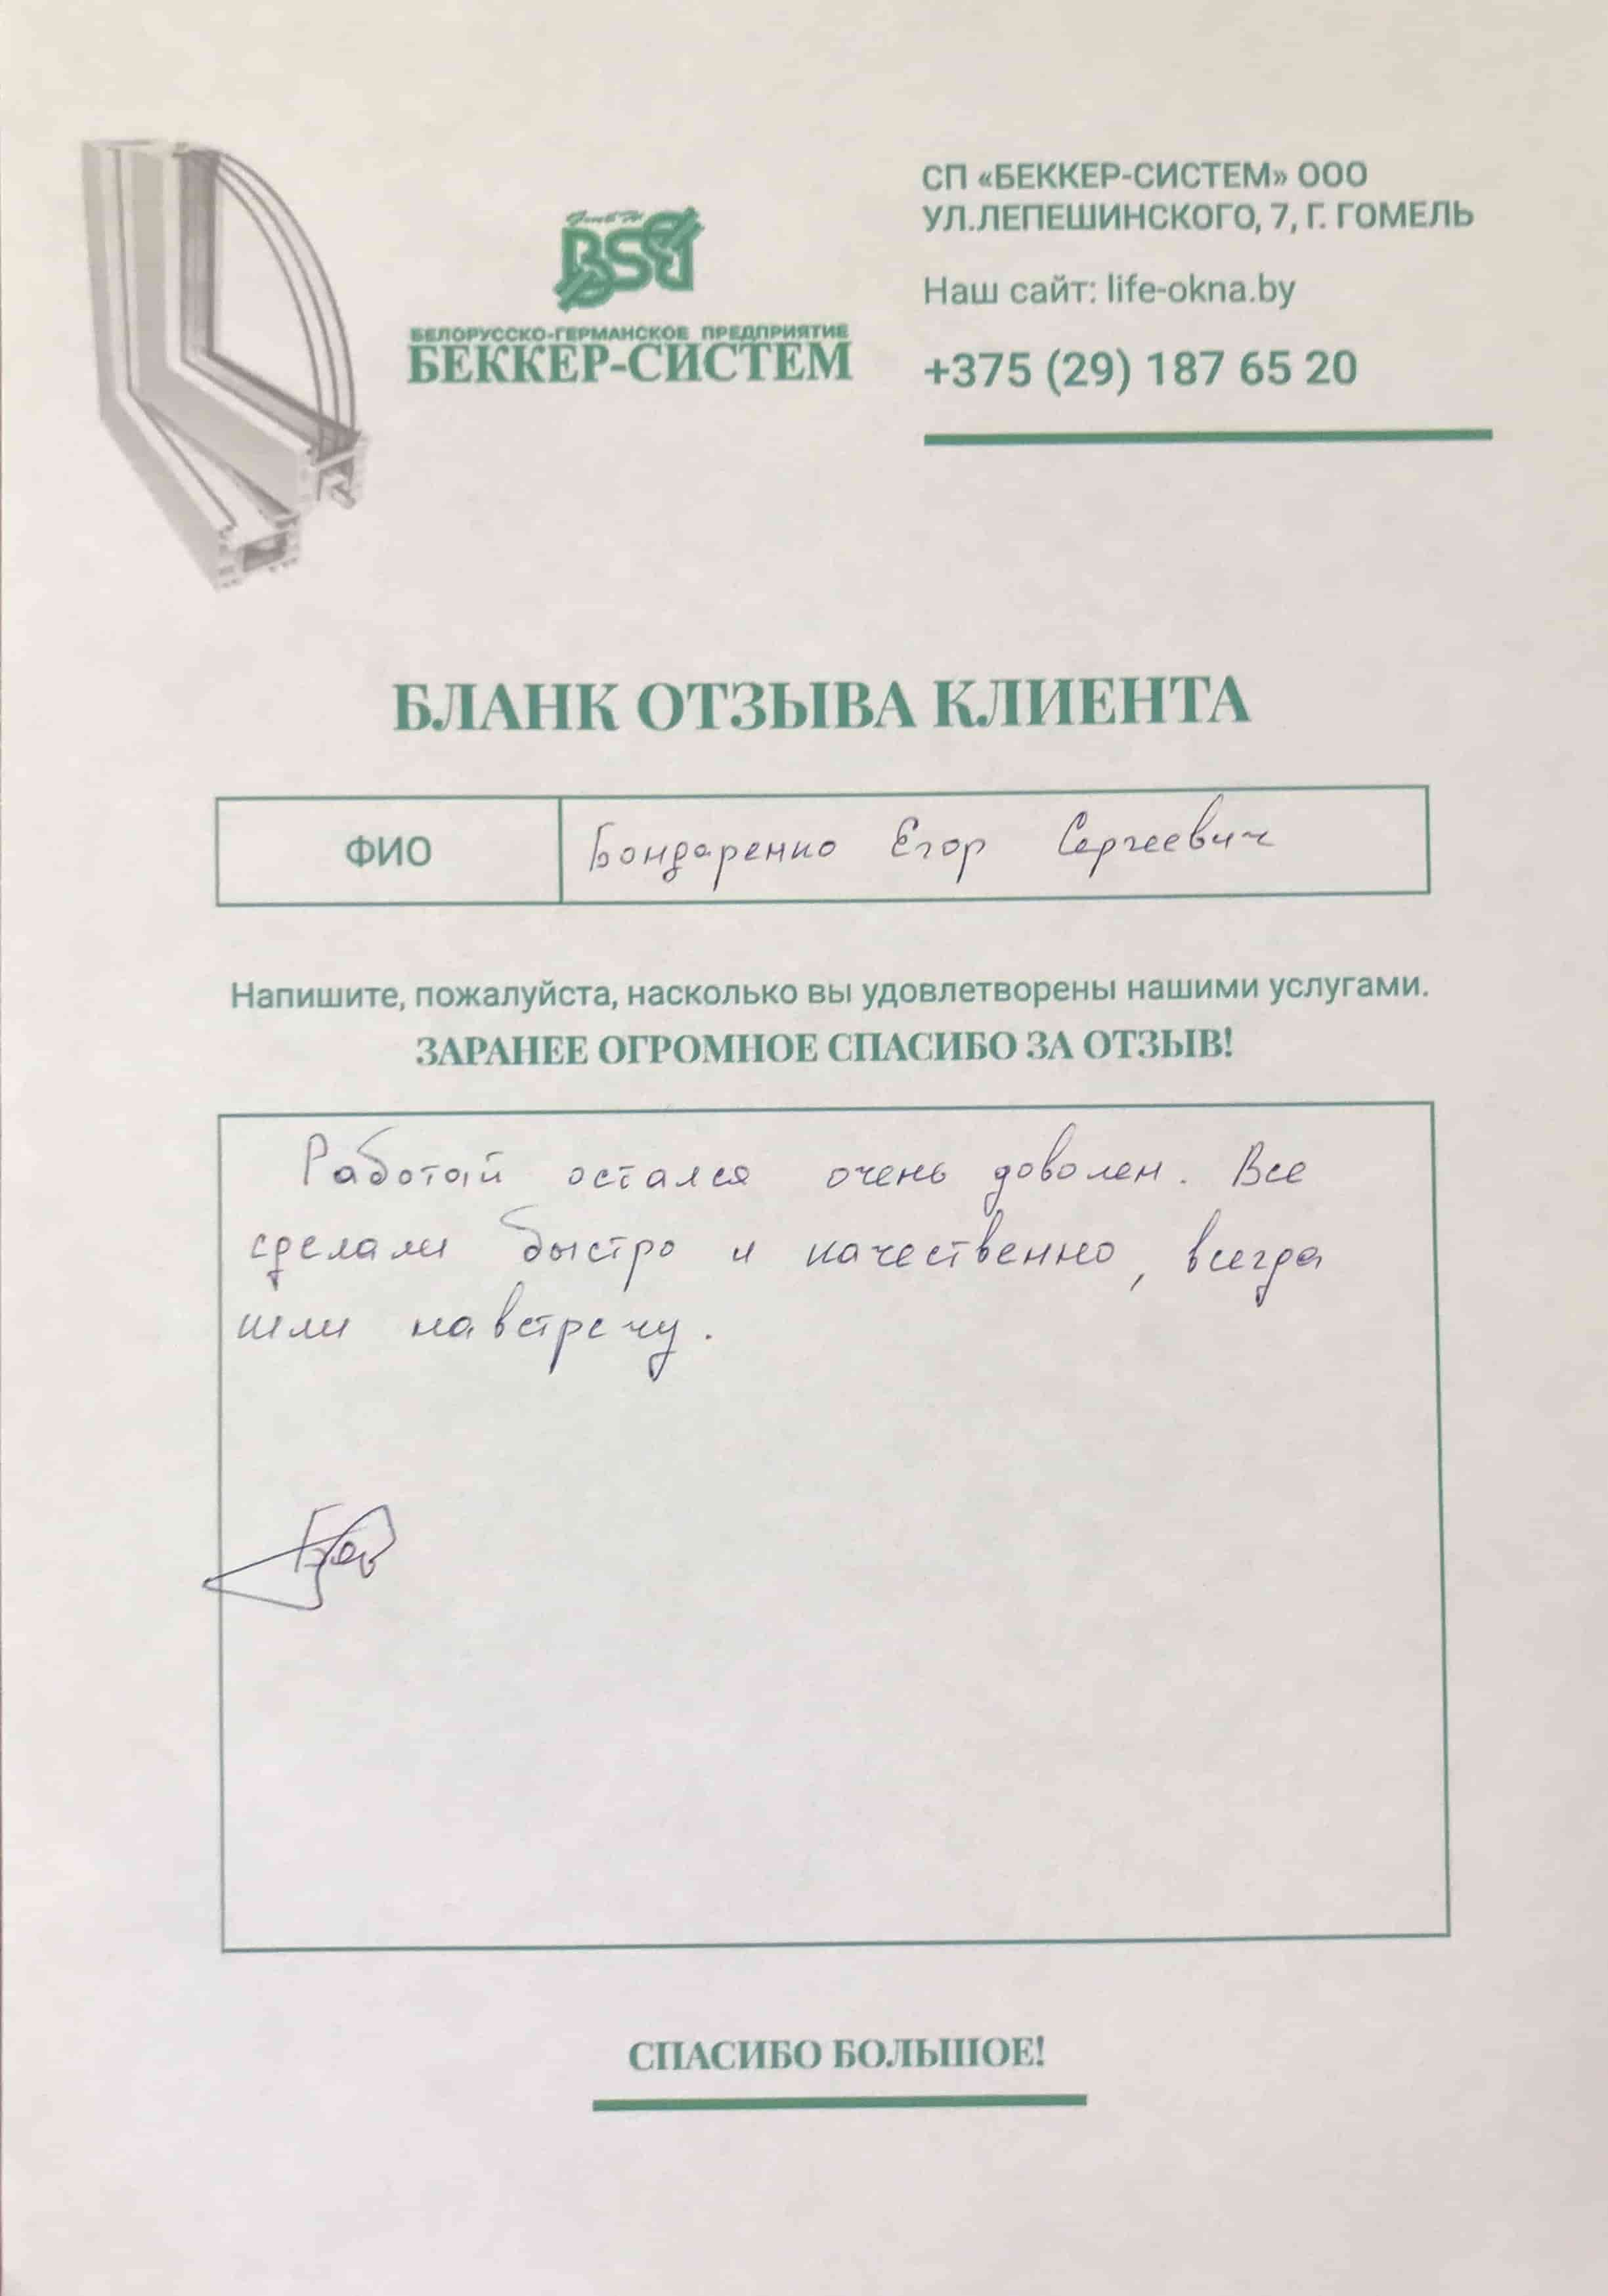 СП «БЕККЕР-СИСТЕМ» ООО
УЛ.ЛЕПЕШИНСКОГО, 7, Г. ГОМЕЛЬ
Наш сайт: life-okna.by
+375 (29) 187 65 20
BSG
БЕЛОРУССКО-ГЕРМАНСКОЕ ПРЕДПРИЯТИЕ
БЕККЕР-СИСТЕМ
БЛАНК ОТЗЫВА КЛИЕНТА
ФИО
Бондаренко Егор Сергеевич
Напишите, пожалуйста, насколько вы удовлетворены нашими услугами.
ЗАРАНЕЕ ОГРОМНОЕ СПАСИБО ЗА ОТЗЫВ!
Работой остался очень доволен. Все
сделали быстро и качественно, всегда
шли навстречу.
СПАСИБО БОЛЬШОЕ!